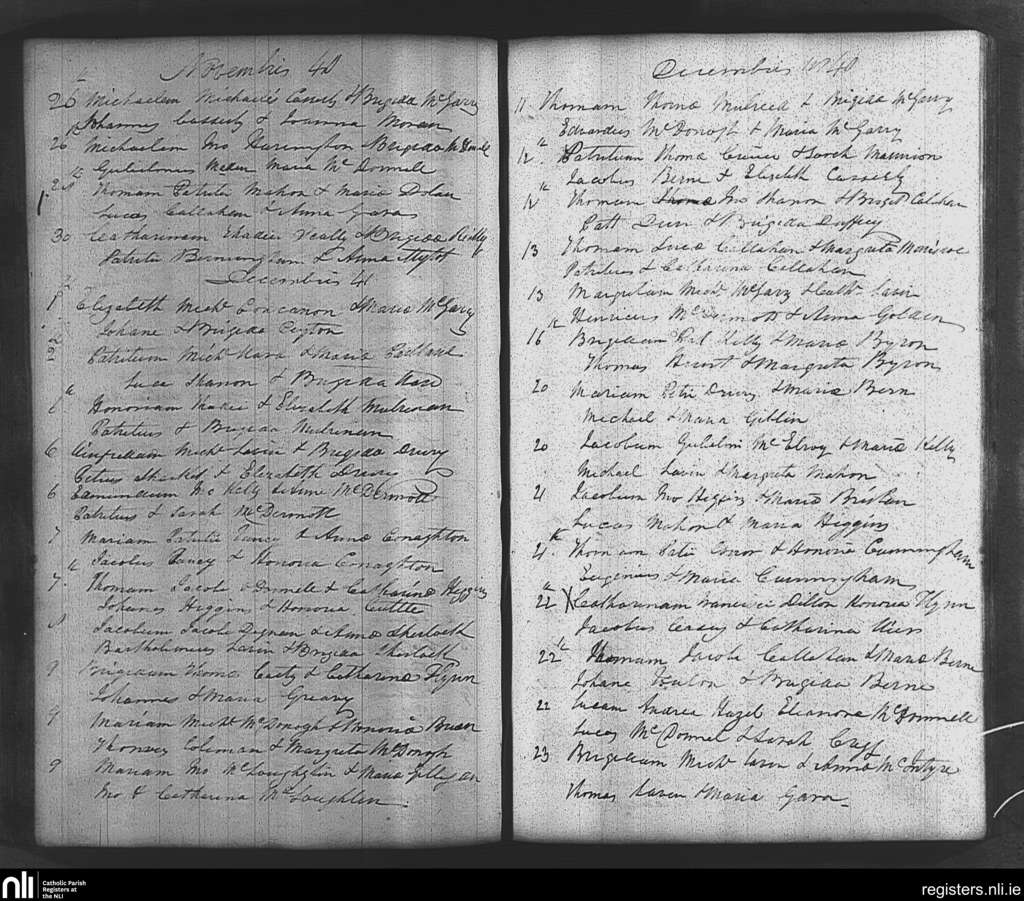 Novembris 48
26 Michaelem Michaelis Cassety & Brigida McGarry
Johannes Cassety & Joanna Moran
26 Michaelem Jno & Brigida
Maria McDonnell
28 Thomam Patritii Mahon & Maria Dolan
Lucas Callahan & Anna Gara
30 Catharinam Thadei & Brigida Reilly
Patritii Bermingham & Anna
Decembris 48
1 Elizabeth Michl Concanon & Maria McGarry
Johane & Brigida Peyton
Patritium Michl Hara & Maria
Luca Shanon & Brigida Hara
Honoriam Thadei & Elizabeth Mulrenan
Patritius & Brigida Mulrenan
6 Winfredam Michl Lavin & Brigida Drury
& Elizabeth Drury
6 Edmundum Jno Kelly & Anne McDermott
Patritius & Sarah McDermott
7 Mariam Patritii Fancy & Anna Conaghton
Jacobus Fancy & Honoria Conaghton
7 Thomam Jacobi ODonnell & Catharina Higgins
Johanes Higgins & Honoria Cuttle
8 Jacobum Jacobi Dignan & Anna
Bartholomeus Lavin & Brigida
9 Brigidam Thoma Casty & Catharina Flynn
Johannes & Maria Greavy
9 Mariam Michl McDonogh & Honoria
Thomas Coleman & Margreta McDonogh
9 Mariam Jno McLoughglin & Maria Gilligan
Jno & Catharina McLoughlin
Decembris 1848
11 Thomam Thoma Mulreed & Brigida McGarry
Edvardus McDonogh & Maria McGarry
12 Patritium Thoma & Sarah Mannion
Jacobus Berne & Elizabeth Cassety
12 Thomam Thoma Jno Shanon & Bridget Calahan
Patt Durr & Brigida Duffey
13 Thomam Luca Callahan & Margreta
Patritius & Catharina Callahan
13 Margretam Michl McGarry & Cath Lavin
Henricus McDermott & Anna Golden
16 Brigidam Pat Kelly & Maria Byron
Thomas & Margreta Byron
20 Mariam Petri Drury & Maria Bern
Michael & Maria Giblin
20 Jacobum Gulielmi McElroy & Maria Kelly
Michael Lavin & Margreta Mahon
21 Jacobum Jno Higgins & Maria
Lucas Mahon & Maria Higgins
21 Thomam Patri Conor & Honoria Cunningham
Eugenius & Maria Cunningham
22 X Catharinam Dillon Honoria Flynn
Jacobus Casey & Catharina
22 Thomam Jacobi Callahan & Maria Berne
Johane & Brigida Berne
22 Lucam Andrea Hazel Eleanora McDonnell
Lucas McDonnel & Sarah
23 Brigidam Michl Lavin & Anna McIntyre
Thomas Lavin & Maria Gara
nli
Catholic Parish
Registers at
the NLI
registers.nli.ie